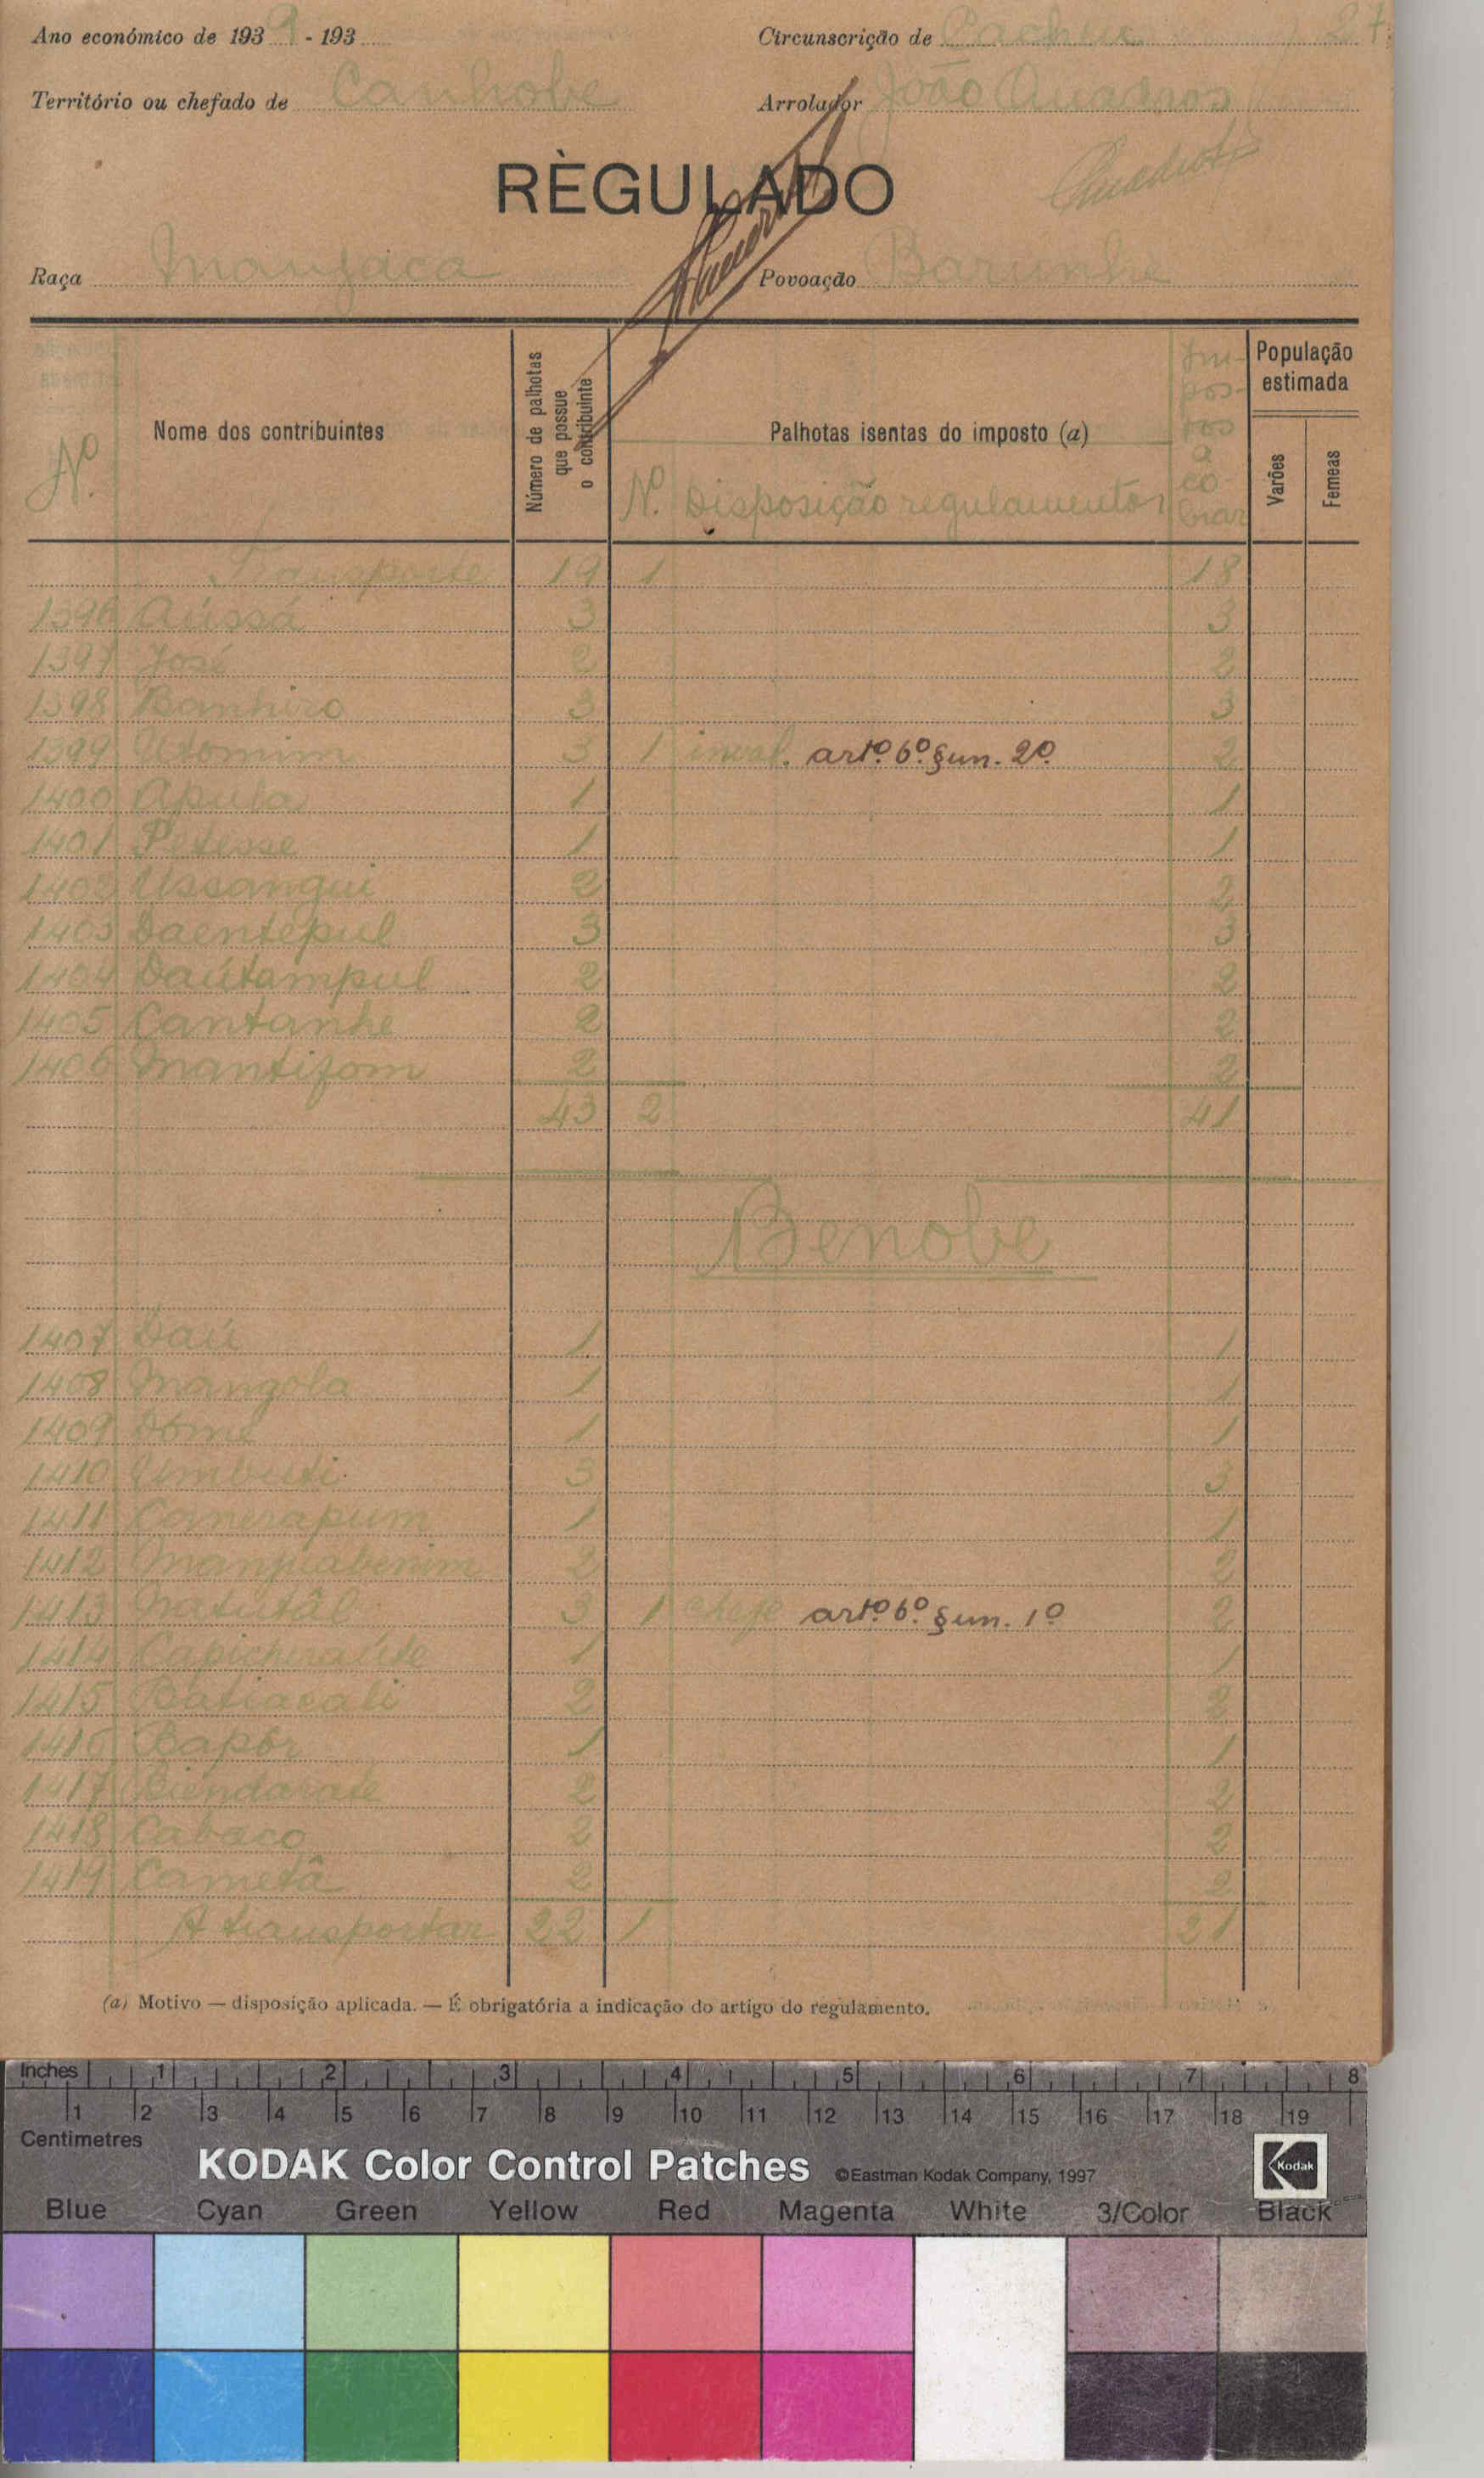 Ano económico de 1939 - 193
Circunscrição de Cacheu 27
Território ou chefado de Canhobe
Arrolador João
RÈGULADO
Raça Manjaca
Povoação Barunhe
Nº
Nome dos contribuintes
Número de palhotas que possue o contribuinte
Palhotas isentas do imposto (a)
Nº. Disposição regulamentar
Impostos a cobrar
População estimada
Varões
Femeas
Transporte 19 1 18
1396 Aússá 3 3
1397 José 2 2
1398 Banhiro 3 3
1399 Utomim 3 1 inval. artº. 6º. §un. 2º. 2
1400 Apula 1 1
1401 Petesse 1 1
1402 Ussangui 2 2
1403 Daentepul 3 3
1404 Daútampul 2 2
1405 Cantanhe 2 2
1406 Mantifom 2 2
43 2 41
Benobe
1407 Daú 1 1
1408 Mangola 1 1
1409 Dóme 1 1
1410 Umbuti 3 3
1411 Comerapum 1 1
1412 2 2
1413 Natutâl 3 1 chefe artº. 6º. §un. 1º 2
1414 Capicheraúte 1 1
1415 Batiacali 2 2
1416 Bapôr 1 1
1417 2 2
1418 Cabaco 2 2
1419 Cametâ 2 2
A transportar 22 1 21
(a) Motivo — disposição aplicada. — É obrigatória a indicação do artigo do regulamento.
Inches 1 2 3 4 5 6 7 8
1 2 3 4 5 6 7 8 9 10 11 12 13 14 15 16 17 18 19
Centimetres
KODAK Color Control Patches ©Eastman Kodak Company, 1997 Kodak
Blue Cyan Green Yellow Red Magenta White 3/Color Black